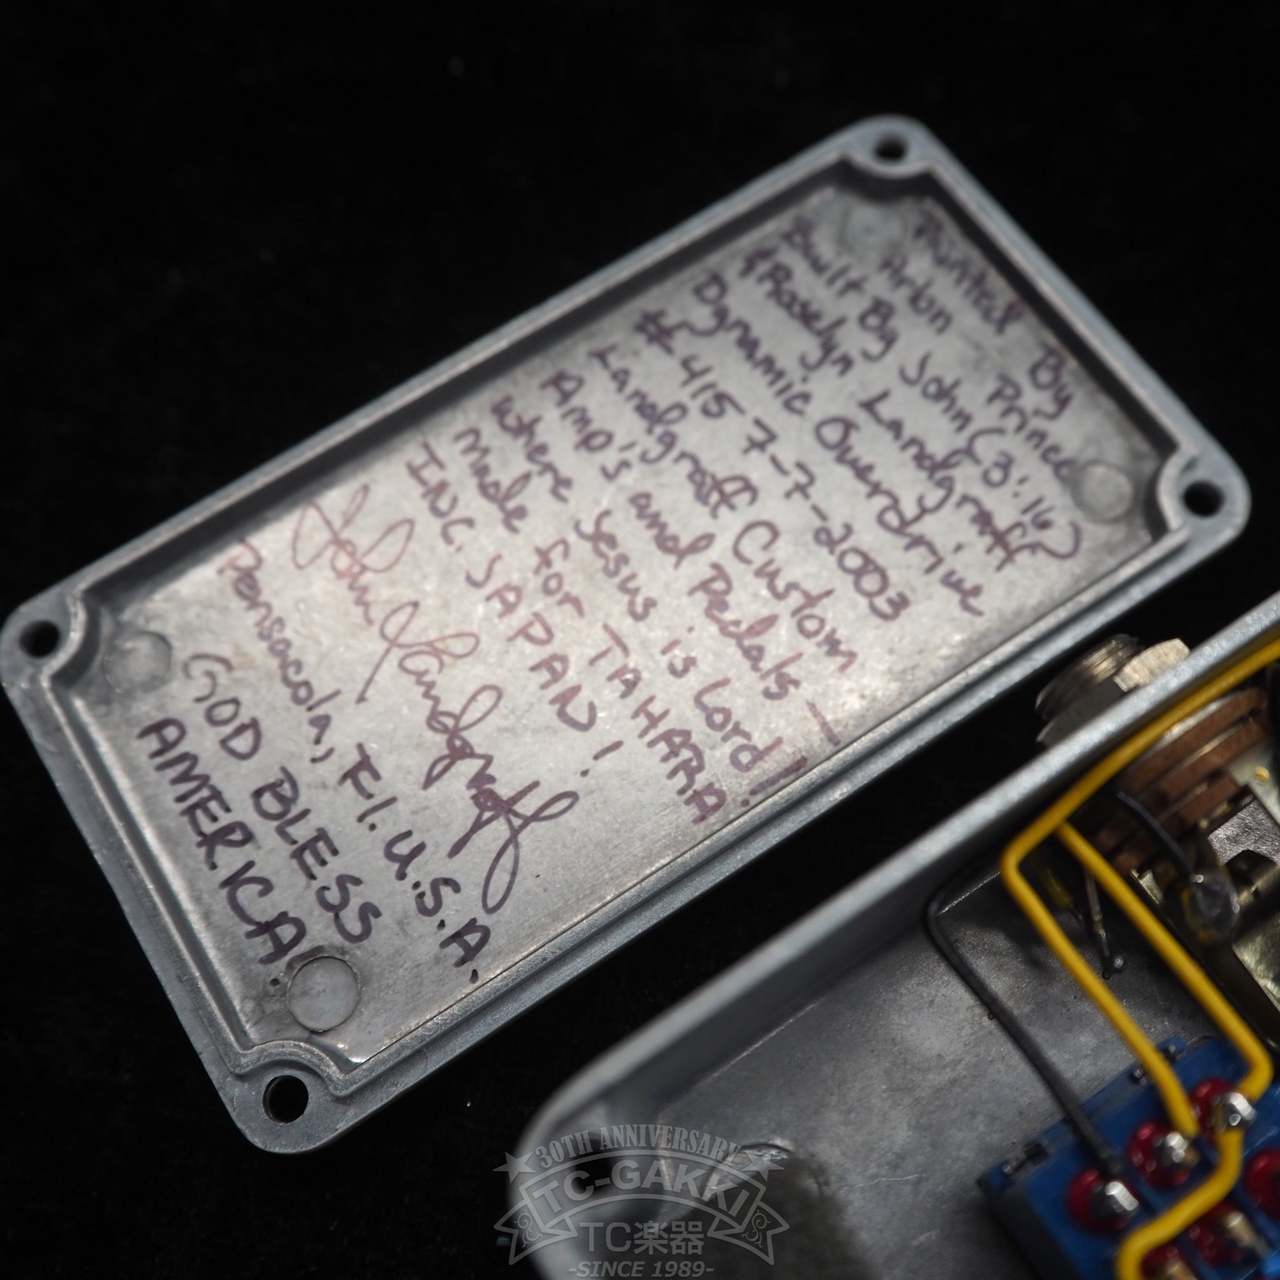 Painted By
Arlon Prince
Built By John (3:16)
& Roselyn Landgraff
Dynamic Overdrive
# 415 7-7-2003
Landgraff Custom
Amp's and Pedals –
Where Jesus is Lord!
made for TAHARA
INC. JAPAN!
John Landgraff
Pensacola, Fl. U.S.A.
GOD BLESS
AMERICA!
30TH ANNIVERSARY
TC-GAKKI
TC楽器
-SINCE 1989-